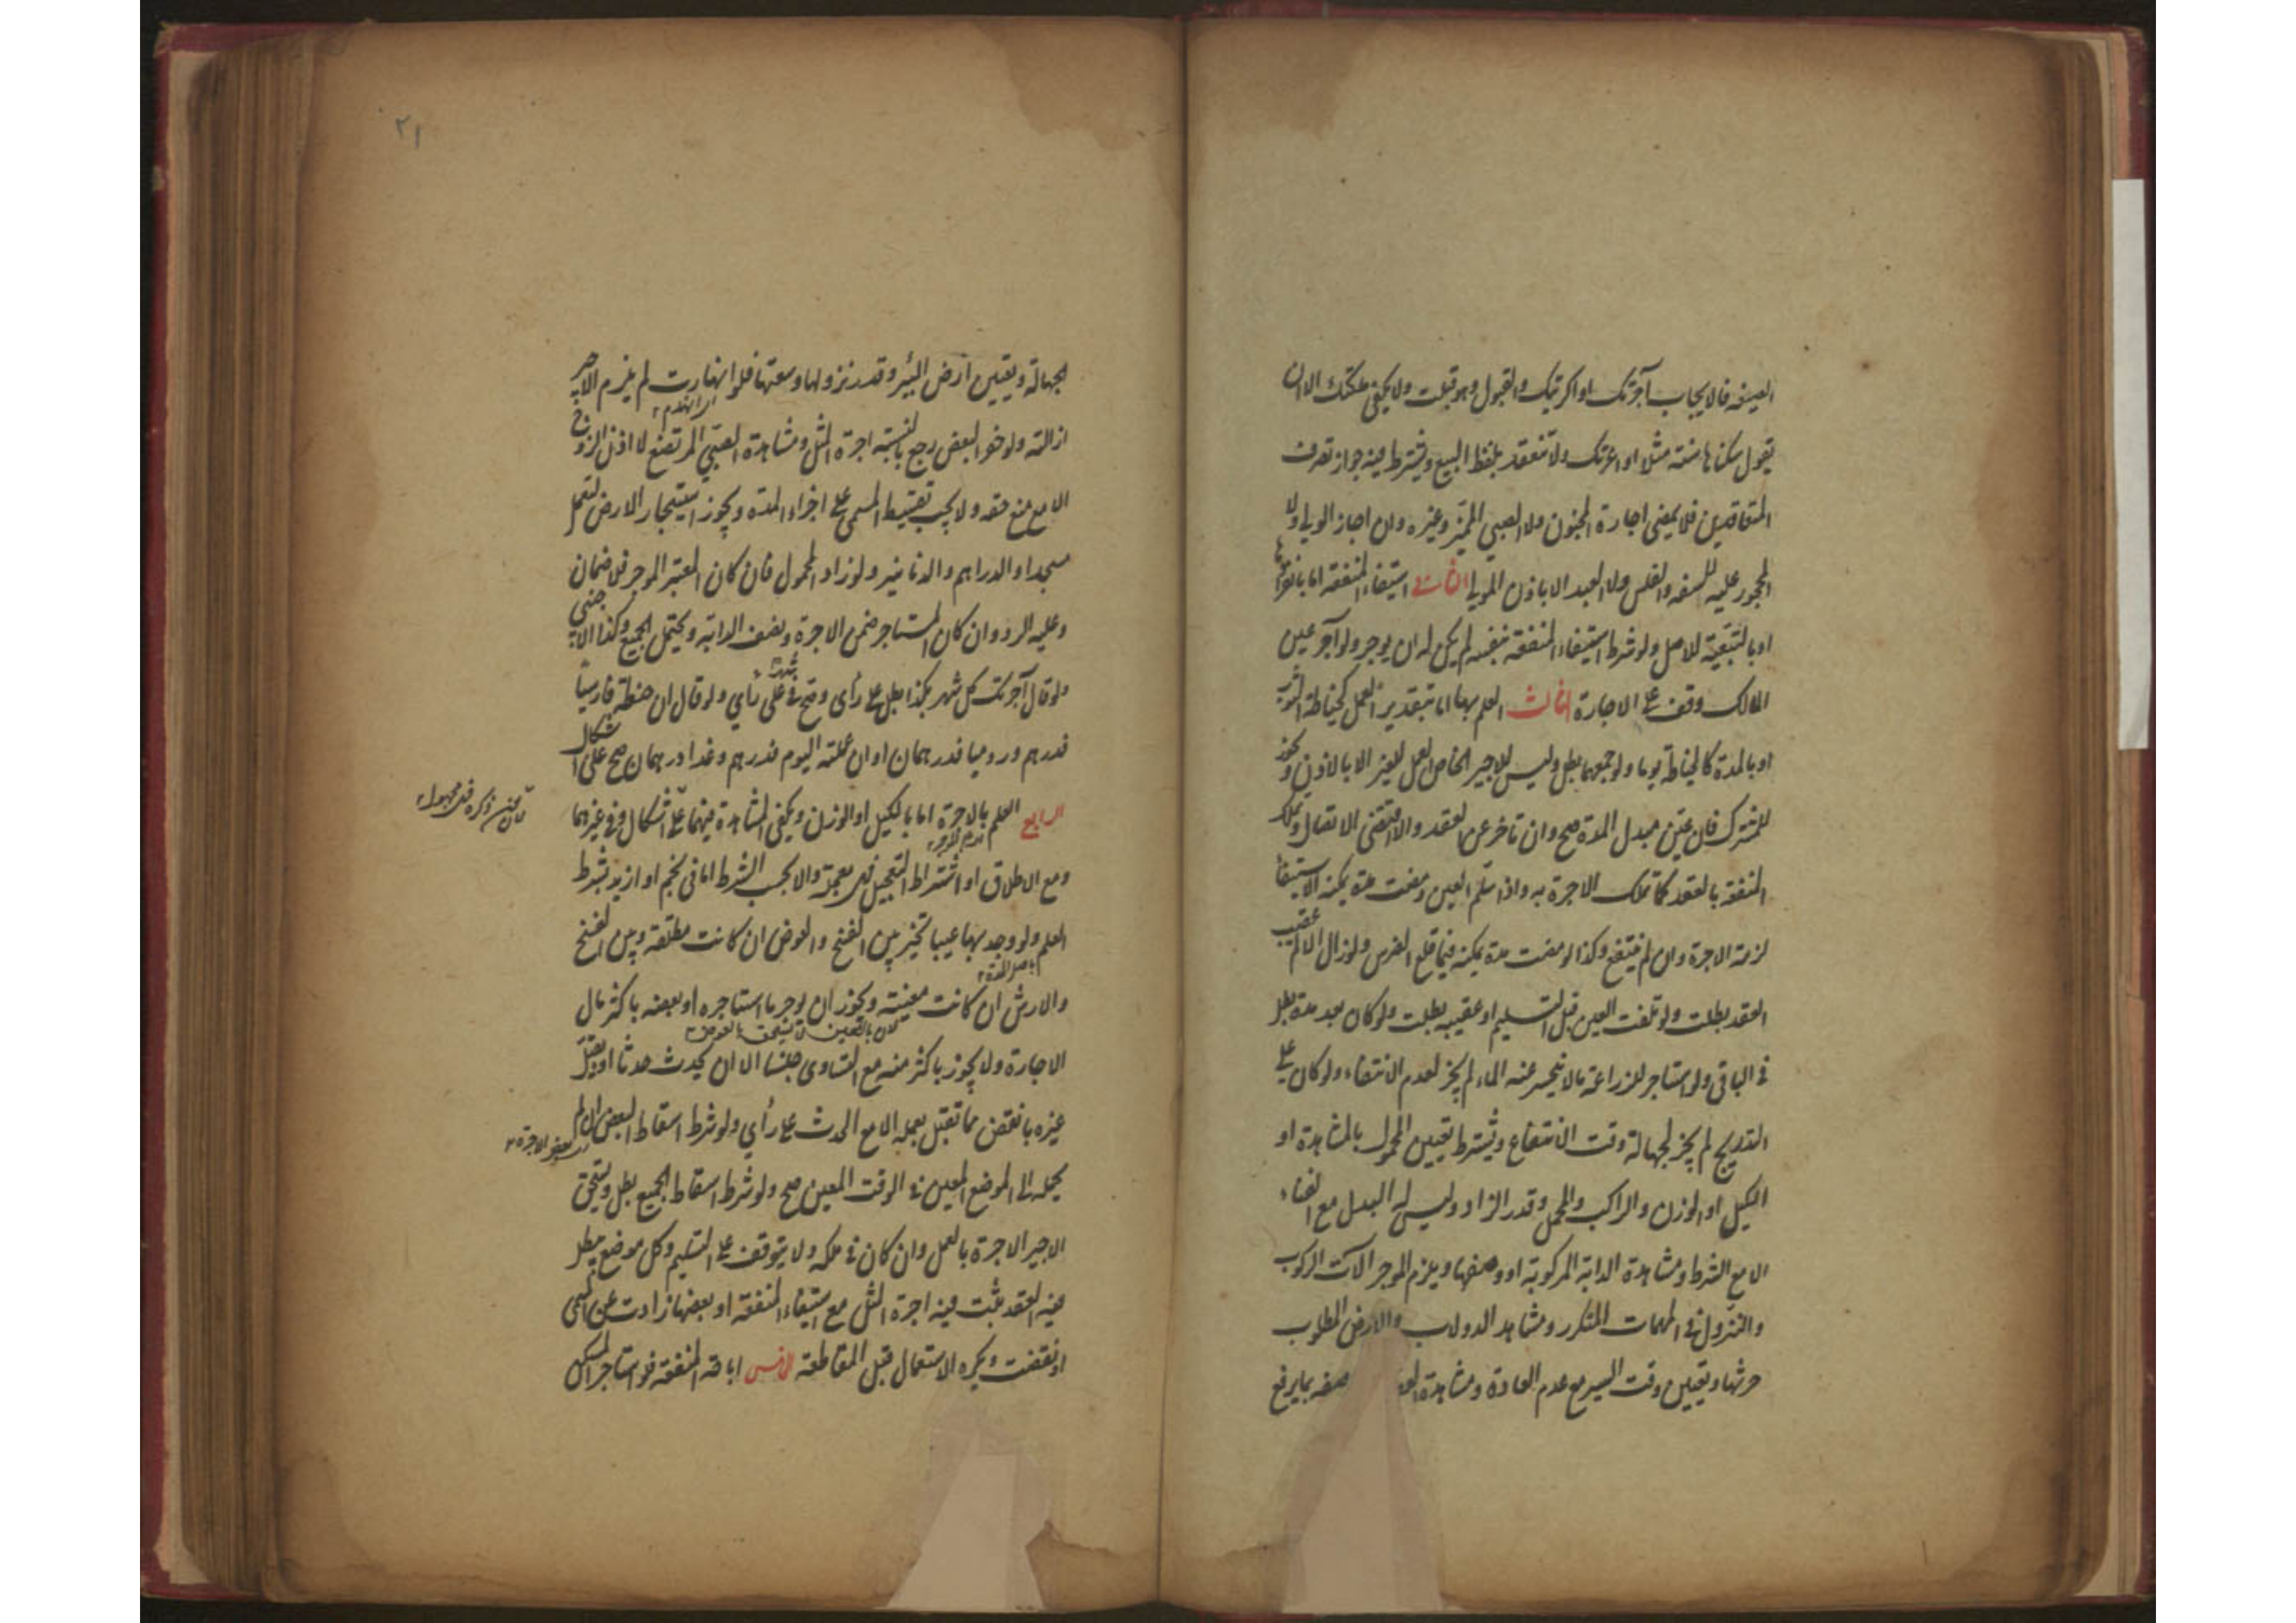 الصيغة فالايجاب آجرتك او اكريتك والقبول وهو قبلت ولا يكفي ملكتك الا ان
يقول سكناها سنة مثلا او اعرتك ولا تنعقد بلفظ البيع ويشترط فيه جواز تصرف
المتعاقدين فلا يمضى اجارة المجنون ولا الصبي المميز وغيره وان اجاز الولي ولا
المحجور عليه للسفه والفلس ولا العبد الا باذن المولى الثاني استيفاء المنفعة اما بانفرادها
او بالتبعية للاصل ولو شرط استيفاء المنفعة بنفسه لم يكن له ان يوجر ولو آجر عين
المالك وقف على الاجارة الثالث العلم بها اما بتقدير العمل كخياطة الثوب
او بالمدة كالخياطة يوما ولو جمعهما بطل وليس للاجير الخاص العمل للغير الا بالاذن ويجوز
للمشترك فان عين مبدل المدة صح وان تاخر عن العقد والا اقتضى الاتصال ويملك
المنفعة بالعقد كما تملك الاجرة به واذا سلم العين ومضت مدة يمكنه الاستيفاء
لزمته الاجرة وان لم ينتفع وكذا لو مضت مدة يمكنه فيها قلع الضرس ولو زال الالم عقيب
العقد بطلت ولو تلفت العين قبل التسليم او عقيبه بطلت ولو كان بعد مدة بطل
في الباقي ولو استاجر للزراعة ما لا ينحسر عنه الماء لم يجز لعدم الانتفاء ولو كان على
التدريج لم يجز لجهالة وقت الانتفاع ويشترط تعيين المحمول بالمشاهدة او
الكيل او الوزن والراكب والمحمل وقدر الزاد وليس له البدل مع الفناء
الا مع الشرط ومشاهدة الدابة المركوبة او وصفها ويلزم الموجر آلات الركوب
والنزول في المهمات المتكرر ومشاهد الدولاب والارض المطلوب
حرثها وتعيين وقت السير مع عدم العادة ومشاهدة صفه بما يرفع
٢١
الجهالة وتعيين ارض البئر وقدر نزولها وسعتها فلو انهارت لم يلزم الاجير
اي انهدم
ازالته ولو حفر البعض رجع بالنسبة اجرة المثل ومشاهدة الصبي المرتضع لا اذن الزوج
الا مع منع حقه ولا يجب تقسيط المسمى على اجزاء المدة ويجوز استيجار الارض لتعمل
مسجدا والدراهم والدنانير ولو زاد المحمول فان كان المعتبر الموجر فلا ضمان
وعليه الرد وان كان المستاجر ضمن الاجرة ونصف الدابة ويحتمل الجميع وكذا الاجنبي
ولو قال آجرتك كل شهر بكذا بطل على رأى وصح في شهر على رأي ولو قال ان خطته فارسيا
فدرهم وروميا فدرهمان او ان عملته اليوم فدرهم وغدا درهمان صح على اشكال
الرابع العلم بالاجرة اما بالكيل او الوزن ويكفي المشاهدة فيهما على اشكال وفي غيرهما
ومع الاطلاق او اشتراط التعجيل فهي معجلة والا بحسب الشرط اما في نجم او ازيد بشرط
العلم ولو وجد بها عيبا تخير بين الفسخ والعوض ان كانت مطلقة وبين الفسخ
والارش ان كانت معينة ويجوز ان يوجر ما استاجره او بعضه باكثر مال
لان بالتعيين لا يستحق العوض
الاجارة ولا يجوز باكثر منه مع التساوى جنسا الا ان يحدث حدثا او يقبل
غيره بانقص مما تقبل بعمله الا مع الحدث على رأي ولو شرط اسقاط البعض ان لم
بعض الاجرة
يحمله الى الموضع المعين في الوقت المعين صح ولو شرط اسقاط الجميع بطل ويستحق
الاجير الاجرة بالعمل وان كان في ملكه ولا يتوقف على التسليم وكل موضع يبطل
فيه العقد يثبت فيه اجرة المثل مع استيفاء المنفعة او بعضها زادت عن المسمى
او نقصت ويكره الاستعمال قبل المقاطعة الخامس اباحة المنفعة فلو استاجر المسكن